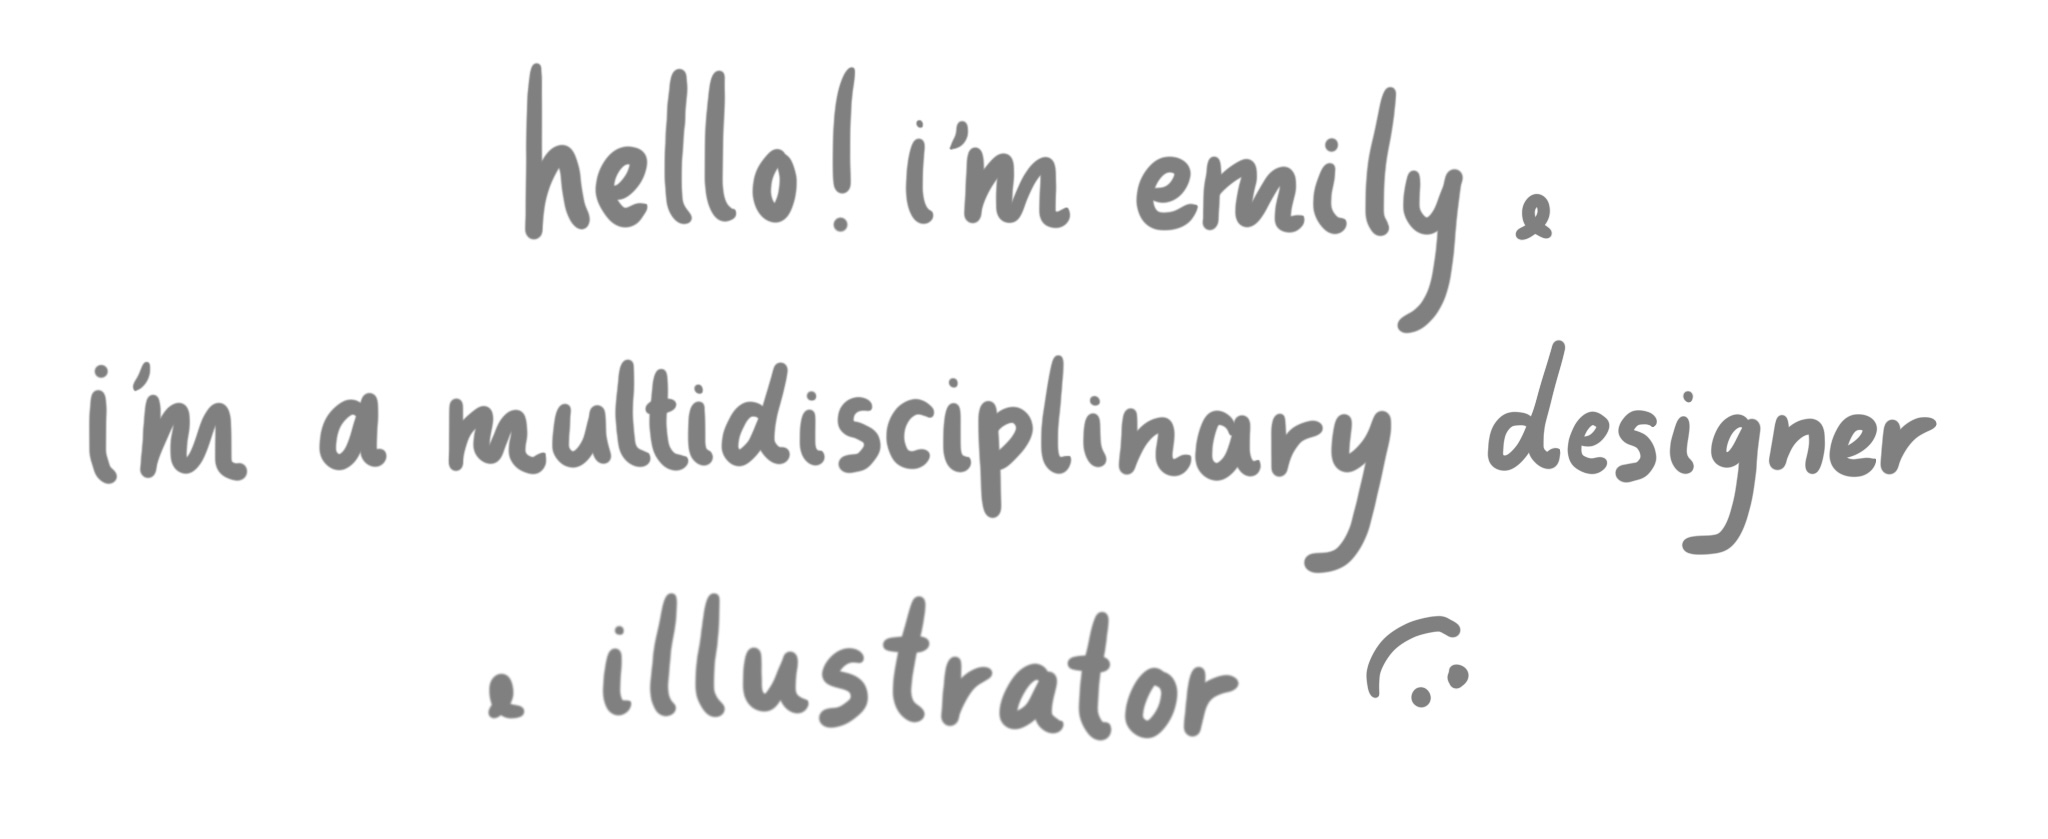 hello! i'm emily &
i'm a multidisciplinary designer
& illustrator